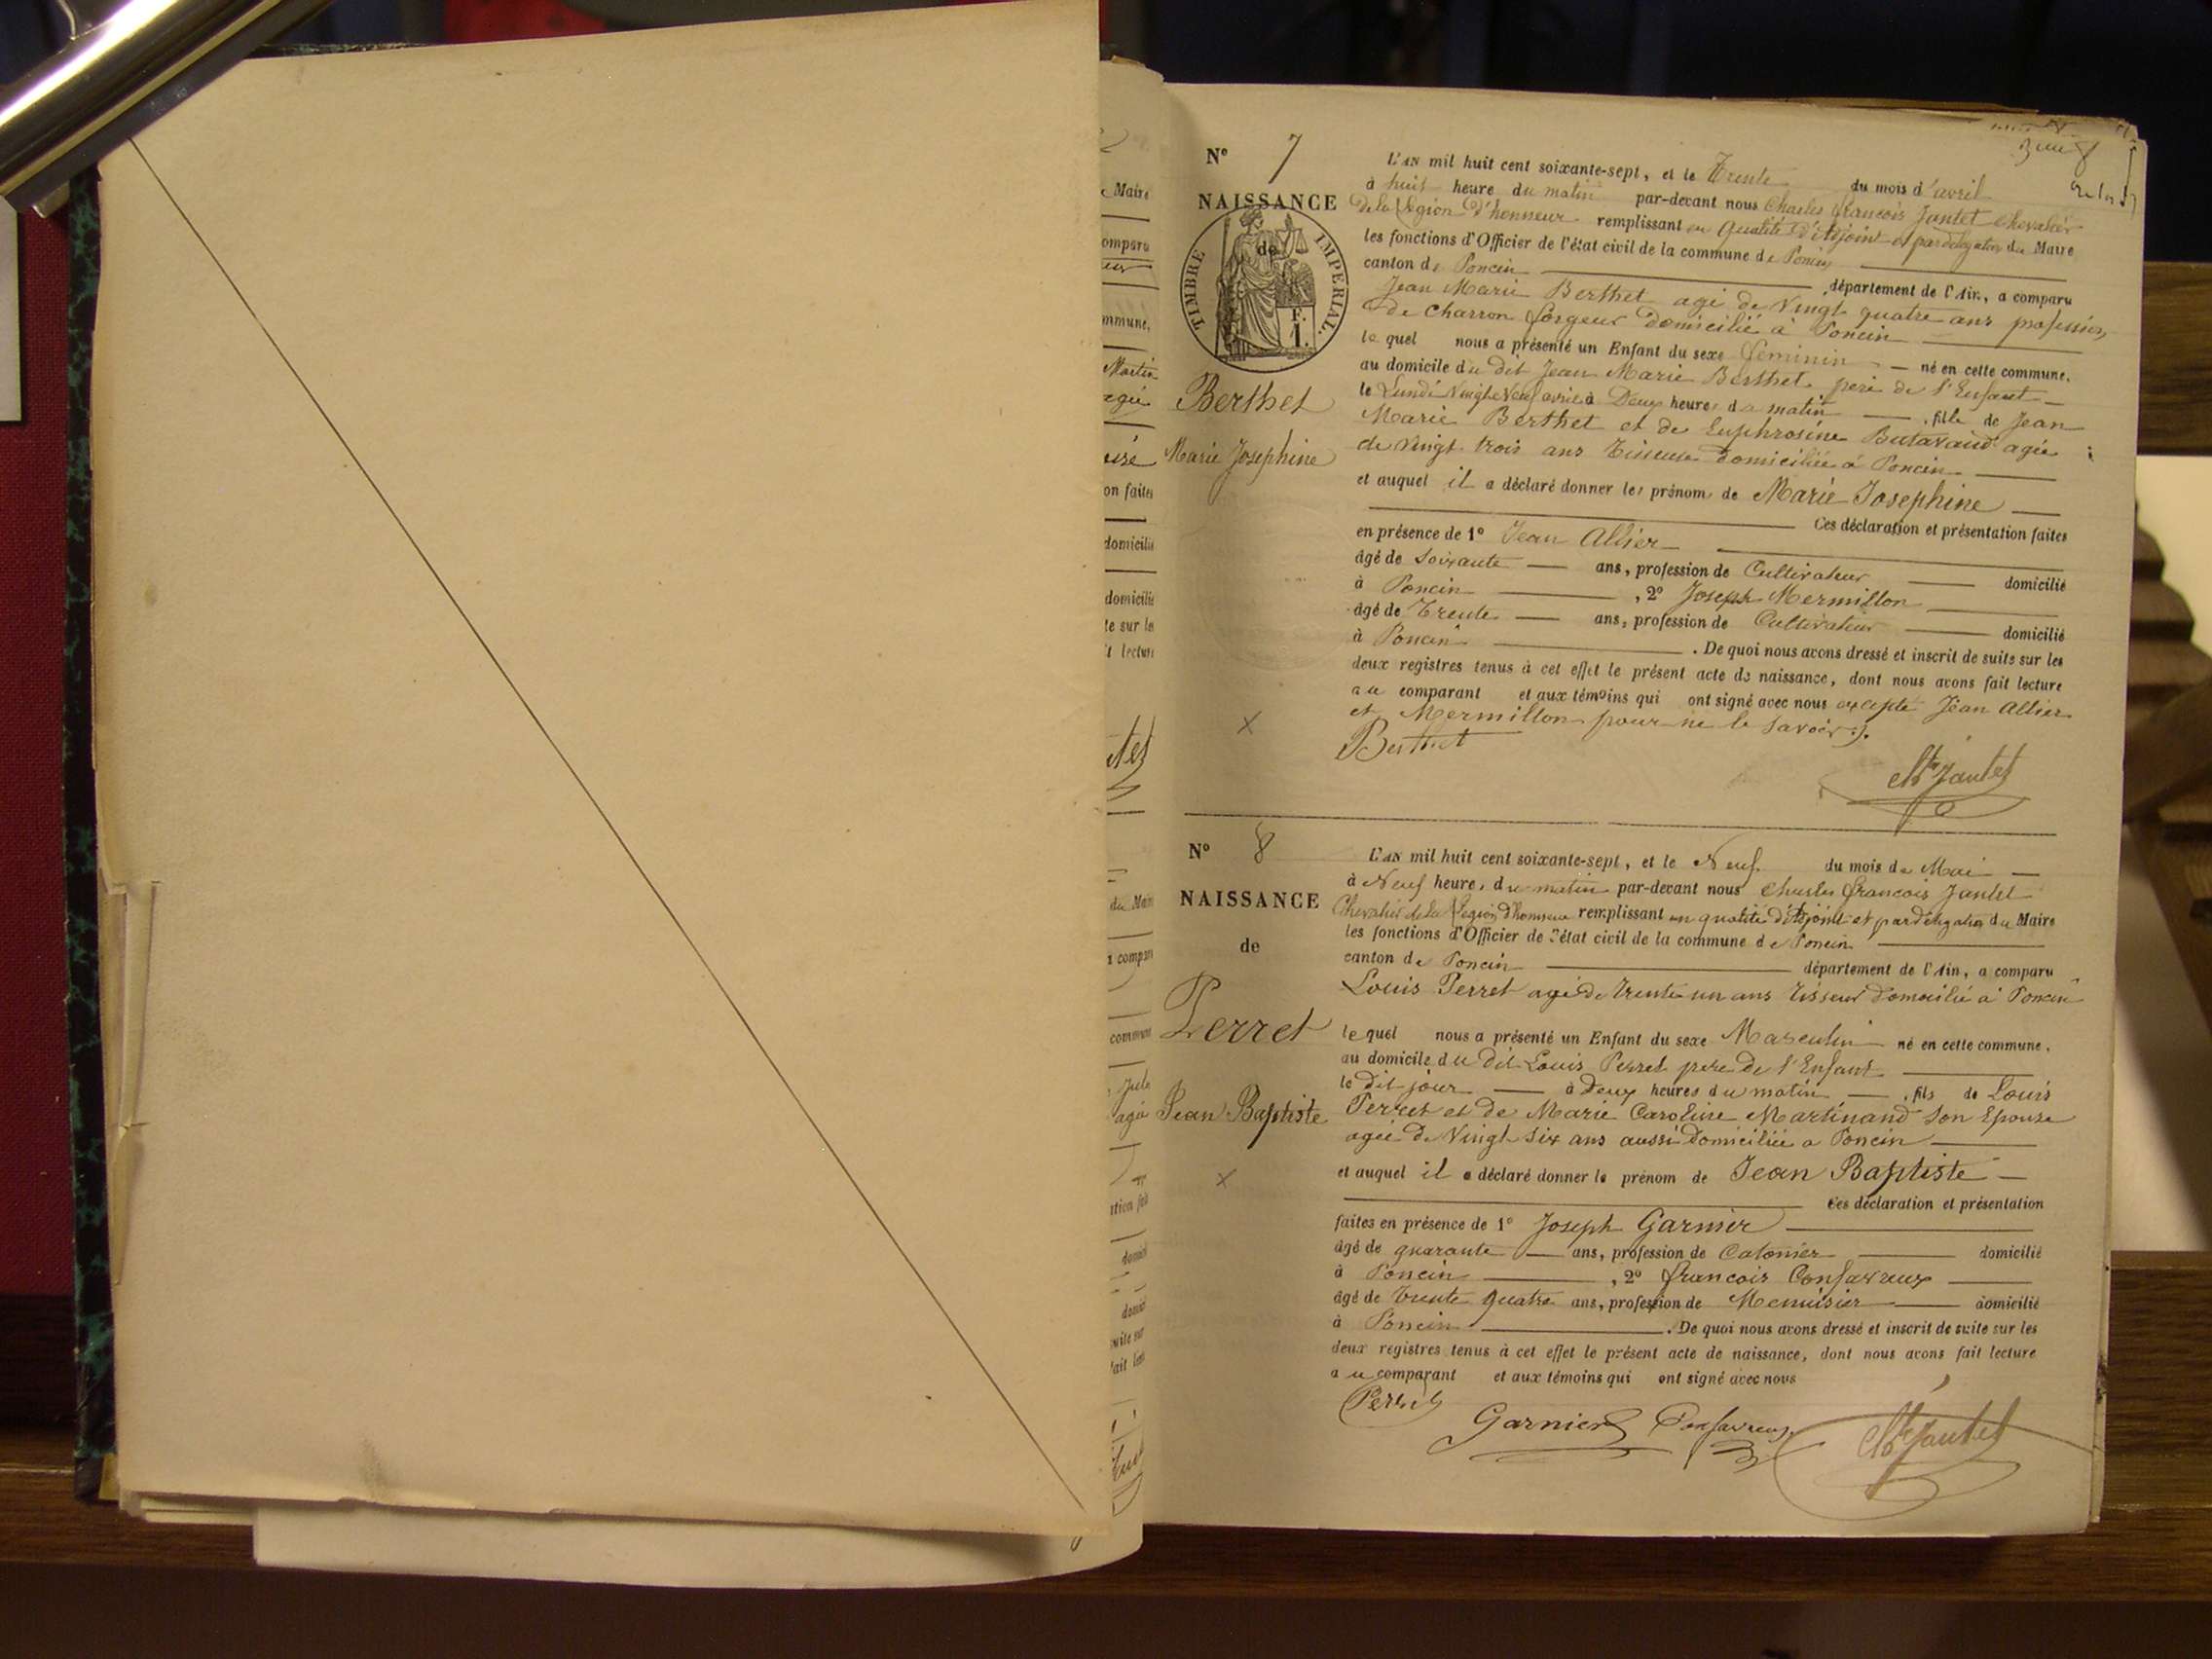 Maire
Martin
agée
on faites
domicilié
domicilié
te sur les
t lecture
N° 7
NAISSANCE
de
TIMBRE IMPERIAL.
F.
1.
Berthet
Marie Josephine
L'AN mil huit cent soixante-sept, et le Trente du mois d'avril
à huit heure du matin par-devant nous Charles francois Jantet Chevalier
de la Légion d'honneur remplissant en qualité d'Adjoint et par délégation du Maire
les fonctions d'Officier de l'état civil de la commune de Poncin
canton de Poncin département de l'Ain, a comparu
Jean Marie Berthet agé de Vingt quatre ans profession
de Charron forgeur domicilié à Poncin
lequel nous a présenté un Enfant du sexe feminin né en cette commune,
au domicile du dit Jean Marie Berthet pere de l'Enfant
le Lundi Vingt Neuf avril à Deux heures du matin , fille de Jean
Marie Berthet et de Euphrosine agée
de Vingt trois ans Tisseuse domiciliée à Poncin
et auquel il a déclaré donner les prénoms de Marie Josephine
Ces déclaration et présentation faites
en présence de 1° Jean Allier
âgé de soixante ans, profession de Cultivateur domicilié
à Poncin , 2° Joseph Mermillon
âgé de Trente ans, profession de Cultivateur domicilié
à Poncin . De quoi nous avons dressé et inscrit de suite sur les
deux registres tenus à cet effet le présent acte de naissance, dont nous avons fait lecture
au comparant et aux témoins qui ont signé avec nous excepté Jean Allier
et Mermillon pour ne le savoir.
Berthet
Jantet
N° 8
NAISSANCE
de
Perret
Jean Baptiste
L'AN mil huit cent soixante-sept, et le Neuf du mois de Mai
à Neuf heure, du matin par-devant nous Charles francois Jantet
Chevalier de la Légion d'honneur remplissant en qualité d'Adjoint et par délégation du Maire
les fonctions d'Officier de l'état civil de la commune de Poncin
canton de Poncin département de l'Ain, a comparu
Louis Perret agé de trente un ans Tisseur domicilié à Poncin
lequel nous a présenté un Enfant du sexe Masculin né en cette commune,
au domicile du dit Louis Perret pere de l'Enfant
le dit jour à Deux heures du matin , fils de Louis
Perret et de Marie Caroline Martinand son Epouse
agée de Vingt six ans aussi domiciliée a Poncin
et auquel il a déclaré donner le prénom de Jean Baptiste
Ces déclaration et présentation
faites en présence de 1° Joseph Garnier
âgé de quarante ans, profession de domicilié
à Poncin , 2° francois Confavreux
âgé de trente quatre ans, profession de Menuisier domicilié
à Poncin . De quoi nous avons dressé et inscrit de suite sur les
deux registres tenus à cet effet le présent acte de naissance, dont nous avons fait lecture
au comparant et aux témoins qui ont signé avec nous
Perret
Garnier Confavreux Jantet